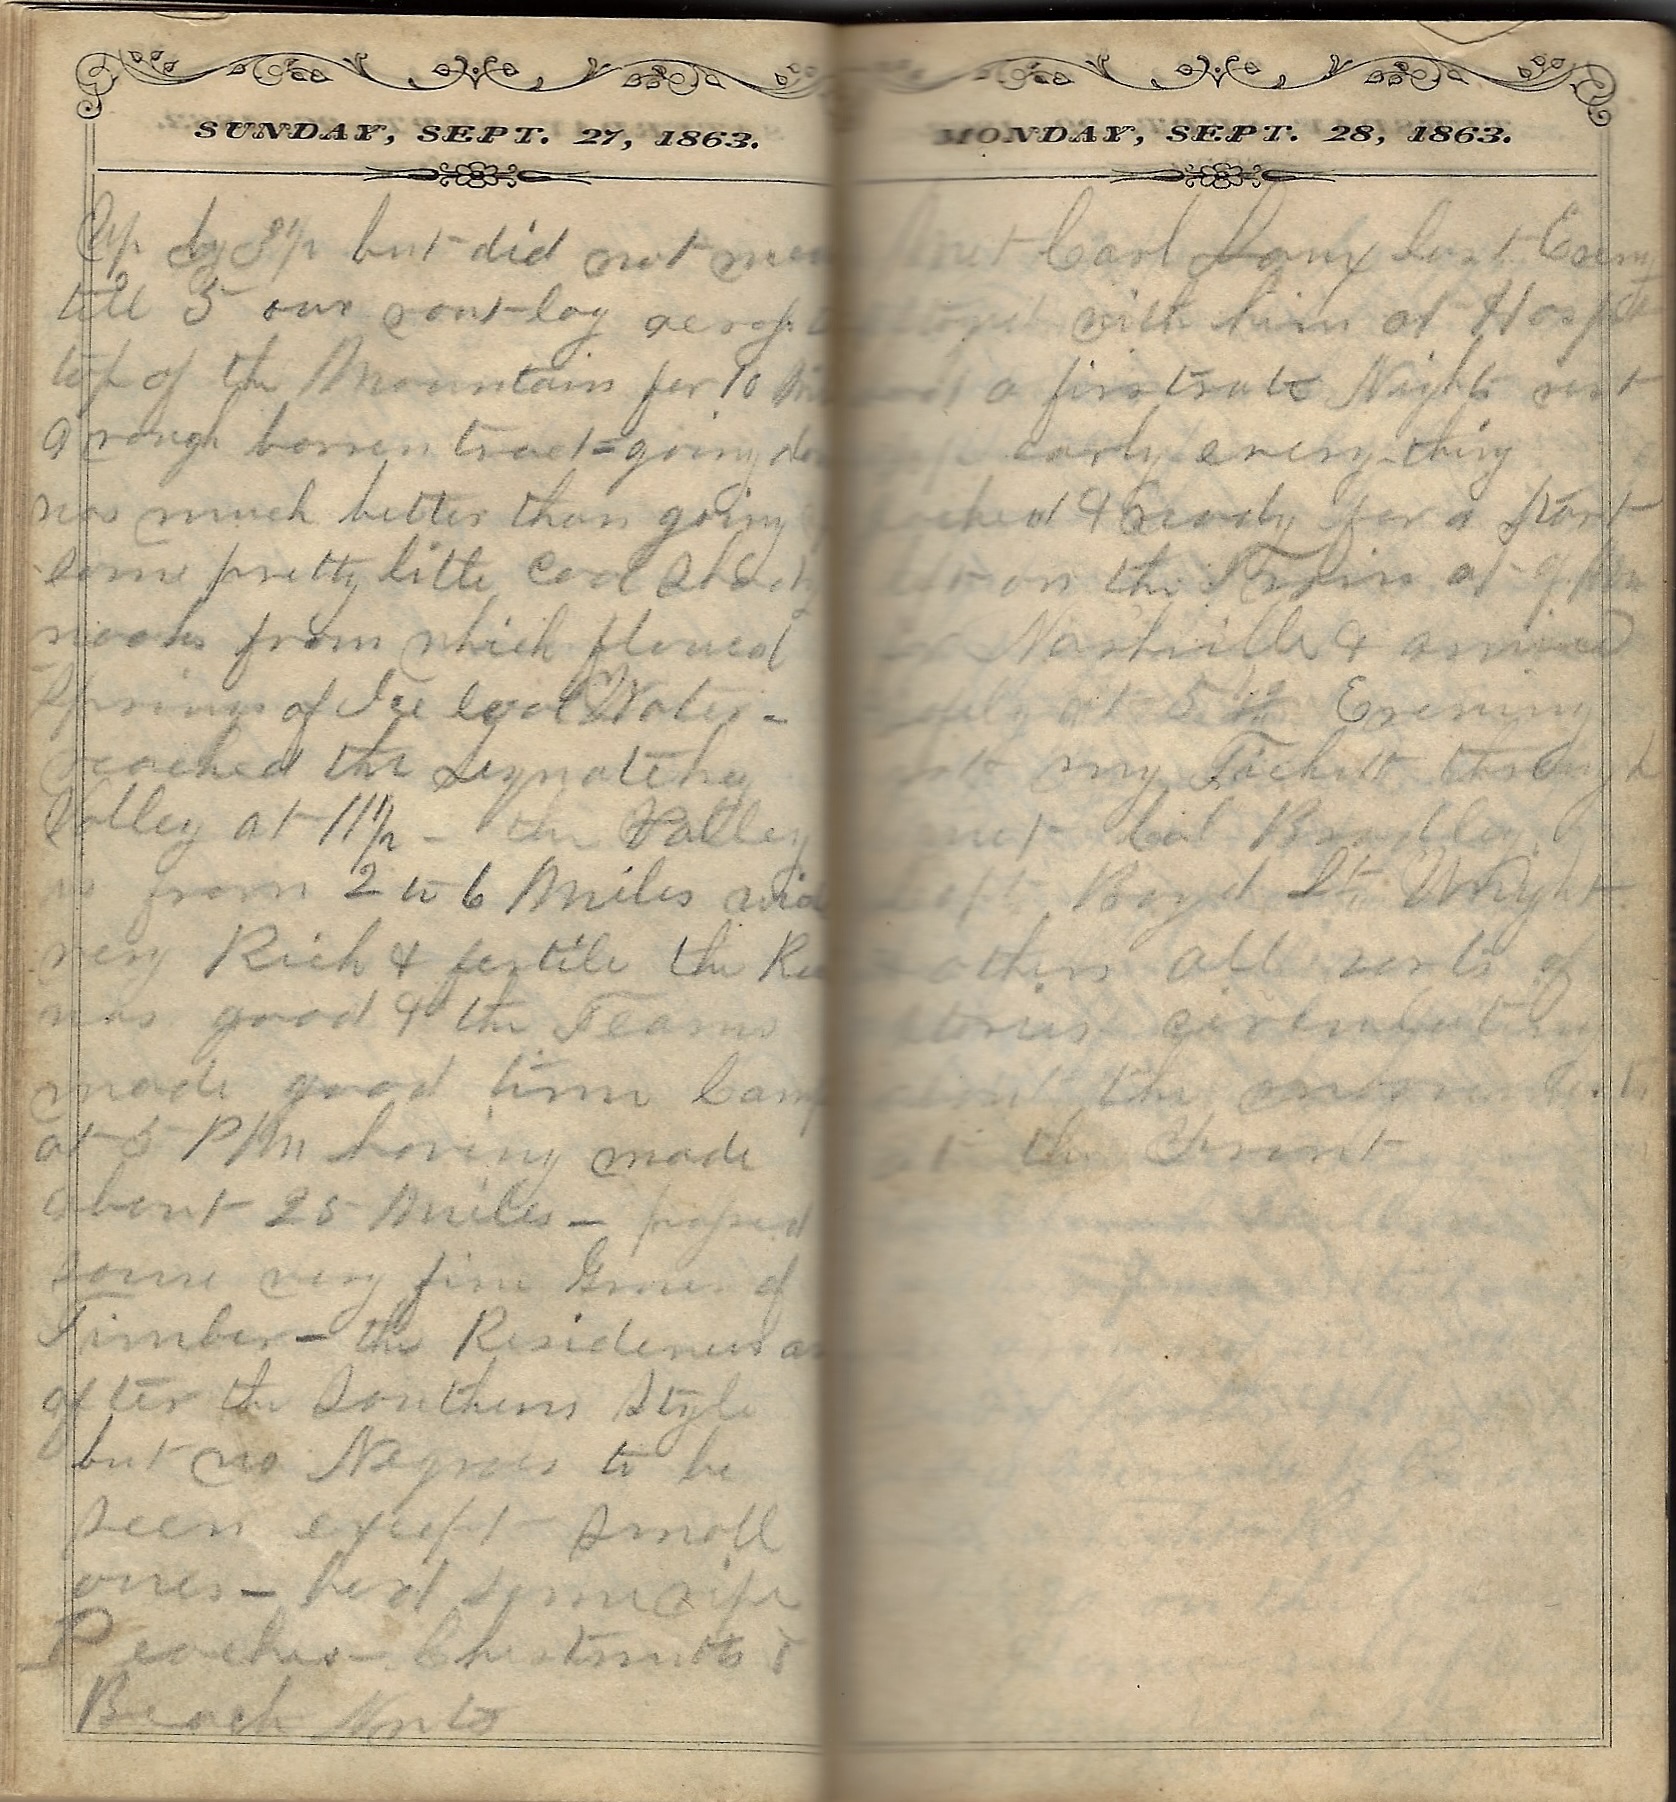 SUNDAY, SEPT. 27, 1863.
Up by 3 1/2 but did not mov
till 5 our rout lay acrop
top of the Mountain for 10 Mi
a rough barren tract = going do
was much better than going
some pretty little cool shady
nooks from which flowed
Springs of Ice Cool Water -
reached the Seqnatchey
Valley at 11 1/2 - the Valley
is from 2 to 6 Miles wid
very Rich & fertile the Ro
was good & the Teams
made good time Camp
at 5 P/M having made
about 25 Miles - passed
some very fine Groves of
Timber - the Residences ar
after the Southern Style
but no Negroes to be
seen except small
ones - had some ripe
Peaches - Chestnutts &
Beach Nuts
MONDAY, SEPT. 28, 1863.
met Carl last Evening
with him at Hospt
a firstrate Nights rest
early every thing
& Ready for a start
on the Train at 9
Nashville & arrived
at 5 1/2 Evening
my Tickett through
met Col Bradley
Capt Boyd Lt Wright
others all sorts of
stories circulating
about the movements
at the Front